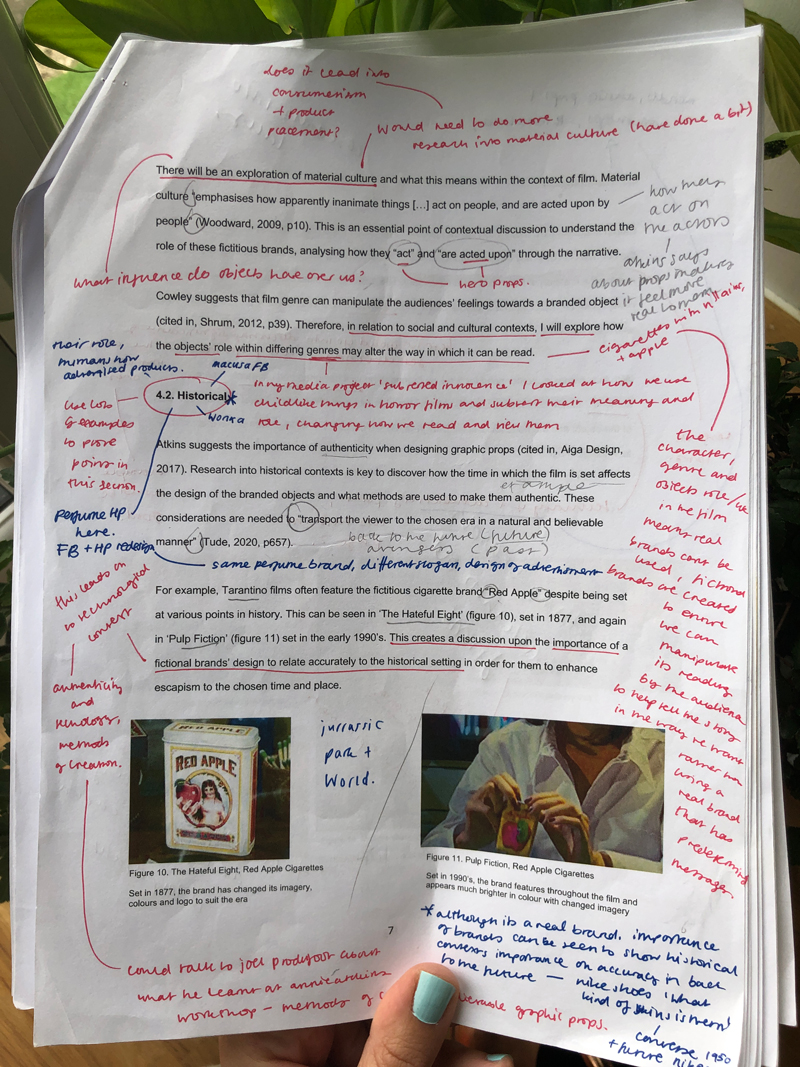 does it lead into
consumerism
+ product
placement?
would need to do more
research into material culture (have done a bit)
There will be an exploration of material culture and what this means within the context of film. Material
culture "emphasises how apparently inanimate things [...] act on people, and are acted upon by
people" (Woodward, 2009, p10). This is an essential point of contextual discussion to understand the
role of these fictitious brands, analysing how they "act" and "are acted upon" through the narrative.
how they
act on
the actors
atkins says
about props making
it feel more
real to them
what influence do objects have over us?
hero props.
Cowley suggests that film genre can manipulate the audiences' feelings towards a branded object
(cited in, Shrum, 2012, p39). Therefore, in relation to social and cultural contexts, I will explore how
the objects' role within differing genres may alter the way in which it can be read.
cigarettes with
+ apple
their role,
humans how
advertised products.
4.2. Historical
FB
in my media project 'subversed innocence' I looked at how we use
childlike things in horror films and subvert their meaning and
role, changing how we read and view them
use lots
of examples
to prove
point in
this section.
Atkins suggests the importance of authenticity when designing graphic props (cited in, Aiga Design,
2017). Research into historical contexts is key to discover how the time in which the film is set affects
the design of the branded objects and what methods are used to make them authentic. These
considerations are needed to "transport the viewer to the chosen era in a natural and believable
manner" (Tude, 2020, p657).
example
back to the future (future)
avengers (past)
perfume HP
here.
FB + HP redesign
same perfume brand, different slogan, design of advertisement
this leads on
to technological
context
For example, Tarantino films often feature the fictitious cigarette brand "Red Apple" despite being set
at various points in history. This can be seen in 'The Hateful Eight' (figure 10), set in 1877, and again
in 'Pulp Fiction' (figure 11) set in the early 1990's. This creates a discussion upon the importance of a
fictional brands' design to relate accurately to the historical setting in order for them to enhance
escapism to the chosen time and place.
the
character,
genre and
objects role/use
in the film
means real
brands cant be
used, fictional
brands are created
to ensure
we can
manipulate
its reading
by the audience
to help tell the story
in the way we want
rather than
using a
real brand
that has
predetermined
messages
authenticity
and
methods
of creation.
jurrassic
park +
World.
RED APPLE
Figure 10. The Hateful Eight, Red Apple Cigarettes
Set in 1877, the brand has changed its imagery,
colours and logo to suit the era
Figure 11. Pulp Fiction, Red Apple Cigarettes
Set in 1990's, the brand features throughout the film and
appears much brighter in colour with changed imagery
7
could talk to joel about
what he learnt at annie atkins
workshop - methods of graphic props.
*although its a real brand, importance
of brands can be seen to show historical
contexts importance on accuracy in back
to the future - nike shoes 'what
kind of skins is them'
converse 1950
+ future nike